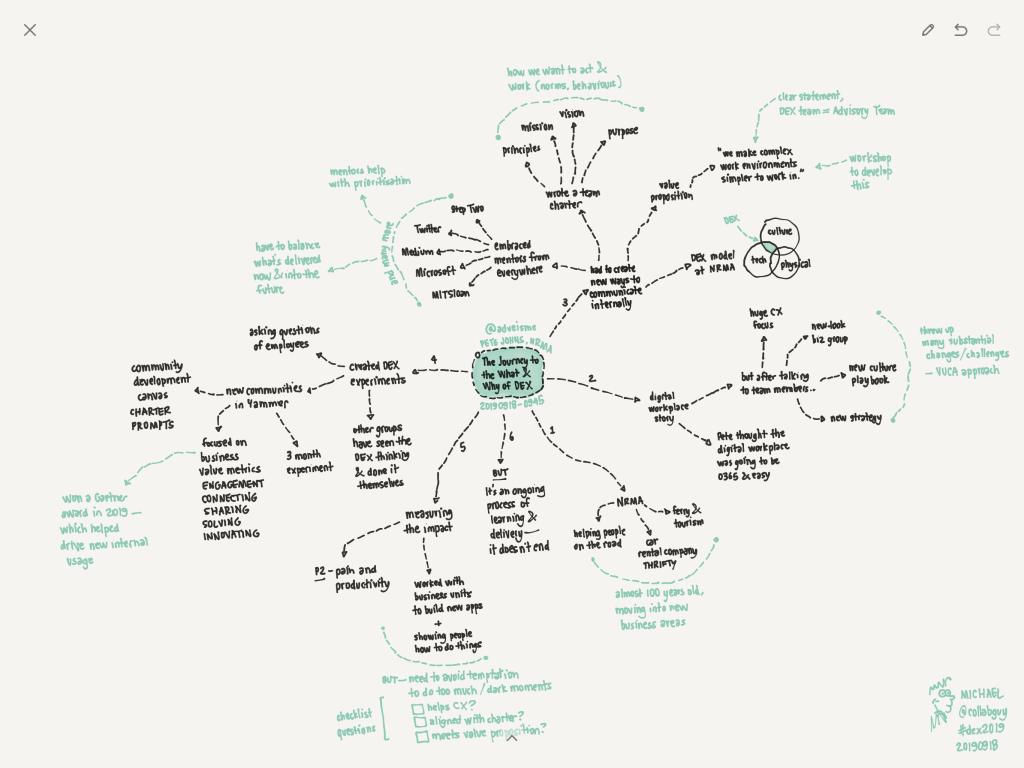 @adveisme
PETE JOHNS, NRMA
The Journey to
the What &
Why of DEX
20190918-0945
1
NRMA
helping people
on the road
car
rental company
THRIFTY
ferry &
tourism
almost 100 years old,
moving into new
business areas
2
digital
workplace
story
Pete thought the
digital workplace
was going to be
O365 & easy
but after talking
to team members..
huge CX
focus
new-look
biz group
new culture
playbook
new strategy
threw up
many substantial
changes/challenges
– VUCA approach
3
had to create
new ways to
communicate
internally
DEX model
at NRMA
DEX
culture
tech
physical
value
proposition
"we make complex
work environments
simpler to work in."
clear statement,
DEX team = Advisory Team
workshop
to develop
this
wrote a team
charter
principles
mission
vision
purpose
how we want to act &
work (norms, behaviours)
embraced
mentors from
everywhere
Step Two
Twitter
Medium
Microsoft
MITSloan
and many more
mentors help
with prioritisation
have to balance
what's delivered
now & into the
future
4
created DEX
experiments
asking questions
of employees
other groups
have seen the
DEX thinking
& done it
themselves
new communities
in Yammer
community
development
canvas
CHARTER
PROMPTS
3 month
experiment
focused on
business
value metrics
ENGAGEMENT
CONNECTING
SHARING
SOLVING
INNOVATING
Won a Gartner
award in 2019 —
which helped
drive new internal
usage
5
measuring
the impact
P2 – pain and
productivity
worked with
business units
to build new apps
+
showing people
how to do things
BUT — need to avoid temptation
to do too much / dark moments
checklist
questions
helps CX?
aligned with charter?
meets value proposition?
6
BUT
It's an ongoing
process of
learning &
delivery —
it doesn't end
MICHAEL
@collabguy
#dex2019
20190918